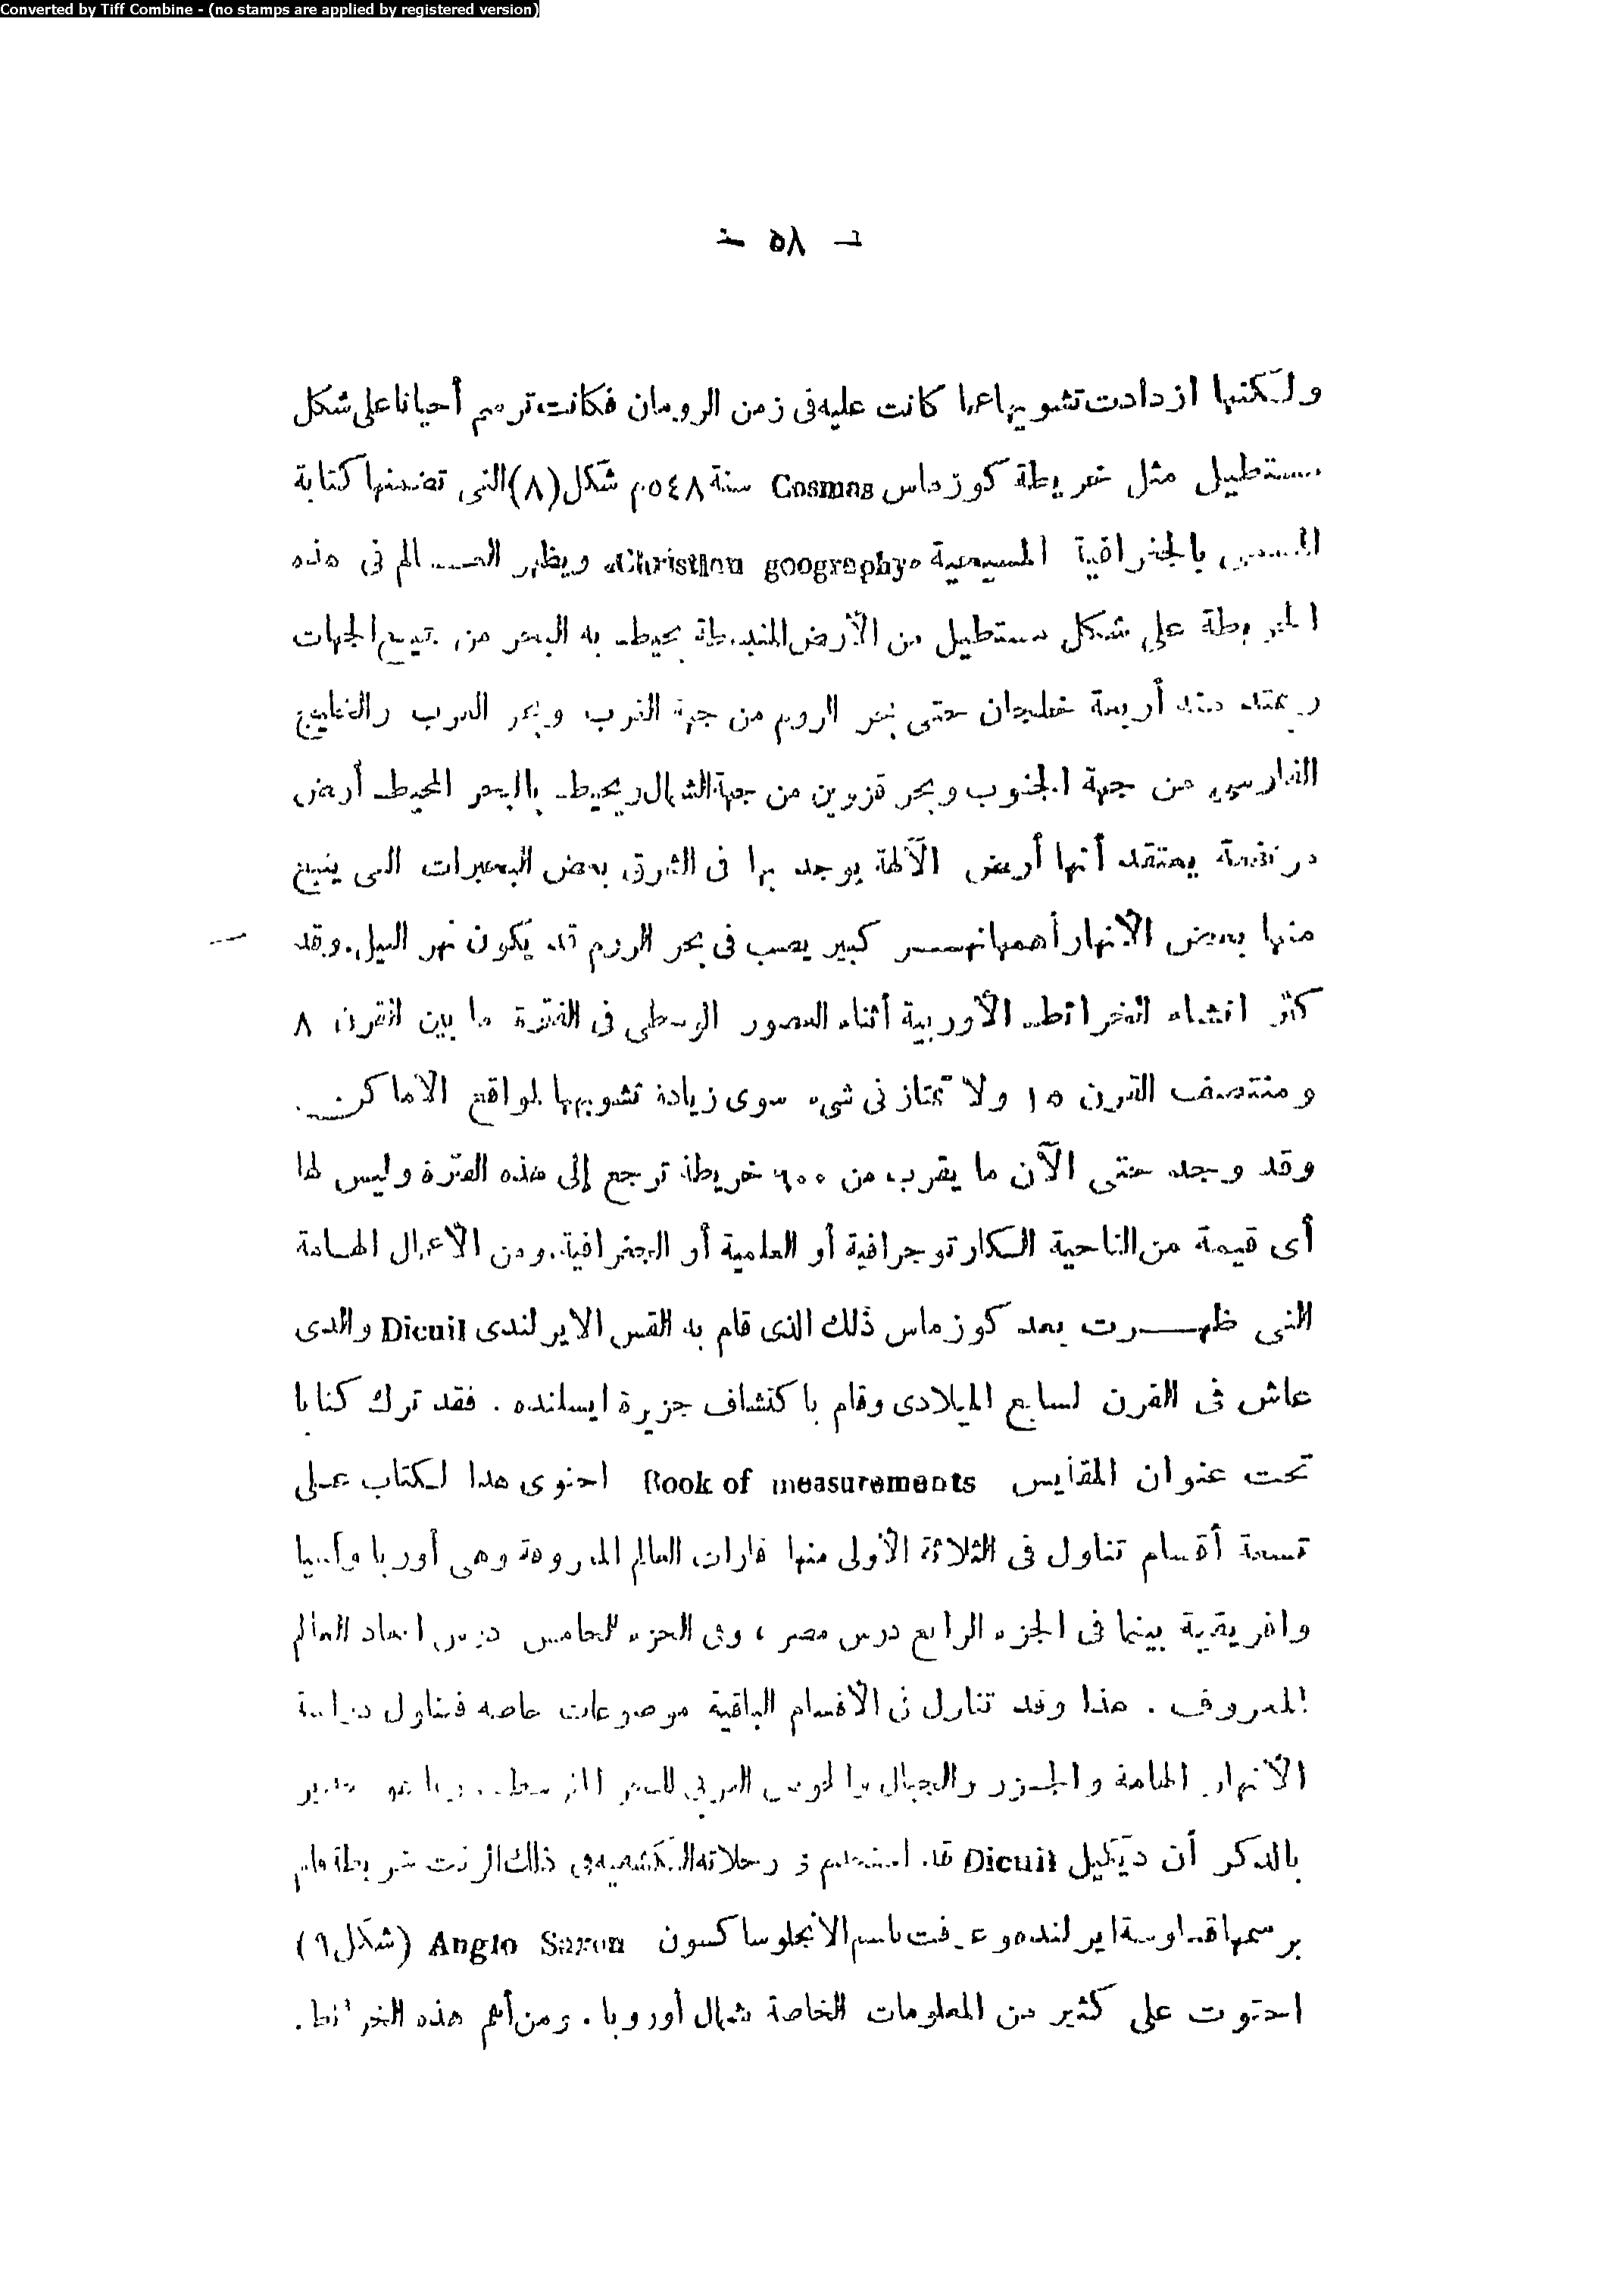 Converted by Tiff Combine - (no stamps are applied by registered version)
- ٥٨ -
ولكنها ازدادت تشويها عما كانت عليه فى زمن الرومان فكانت ترسم أحيانا على شكل
مستطيل مثل خريطة كوزماس Cosmas سنة ٥٤٨م شكل (٨) التى تضمنها كتابة
المسمى بالجغرافية المسيحية «Christian geography» ويظهر العالم فى هذه
الخريطة على شكل مستطيل من الأرض المنبسطة يحيط به البحر من جميع الجهات
ويمتد منه أربعة خلجان حتى بحر الروم من جهة الغرب وبحر العرب والخليج
الفارسى من جهة الجنوب وبحر قزوين من جهة الشمال ويحيط بالبحر المحيط أرض
مرتفعة يعتقد أنها أرض الآلهة يوجد بها فى الشرق بعض البحيرات التى ينبع
منها بعض الأنهار أهمها نهر كبير يصب فى بحر الروم قد يكون نهر النيل. وقد
كثر انشاء الخرائط الأوربية أثناء العصور الوسطى فى الفترة ما بين القرن ٨
ومنتصف القرن ١٥ ولا تمتاز فى شىء سوى زيادة تشويهها لمواقع الأماكن.
وقد وجد حتى الآن ما يقرب من ٦٠٠ خريطة ترجع إلى هذه الفترة وليس لها
أى قيمة من الناحية الكارتوجرافية أو العلمية أو الجغرافية. ومن الأعمال الهامة
التى ظهرت بعد كوزماس ذلك الذى قام به القس الايرلندى Dicuil والذى
عاش فى القرن لسابع الميلادى وقام باكتشاف جزيرة ايسلنده. فقد ترك كتابا
تحت عنوان المقاييس Book of measurements احتوى هذا لكتاب على
تسعة أقسام تناول فى الثلاثة الأولى منها قارات العالم المعروفة وهى أوربا وآسيا
وافريقية بينما فى الجزء الرابع درس مصر، وفى الجزء الخامس درس ابعاد العالم
المعروف. هذا وقد تناول فى الأقسام الباقية موضوعات خاصه فتناول دراسة
الأنهار الهامة والجزر والجبال والحوض الغربى للبحر المتوسط. ومما هو جدير
بالذكر أن ديكيل Dicuil قد استخدم فى رحلاته الكشفيه فى ذلك الوقت خريطة قام
برسمها قساوسة ايرلنده وعرفت باسم الانجلوساكسون Anglo Saxon (شكل ٩)
احتوت على كثير من المعلومات الخاصة شمال أوروبا. ومن أهم هذه الخرائط.